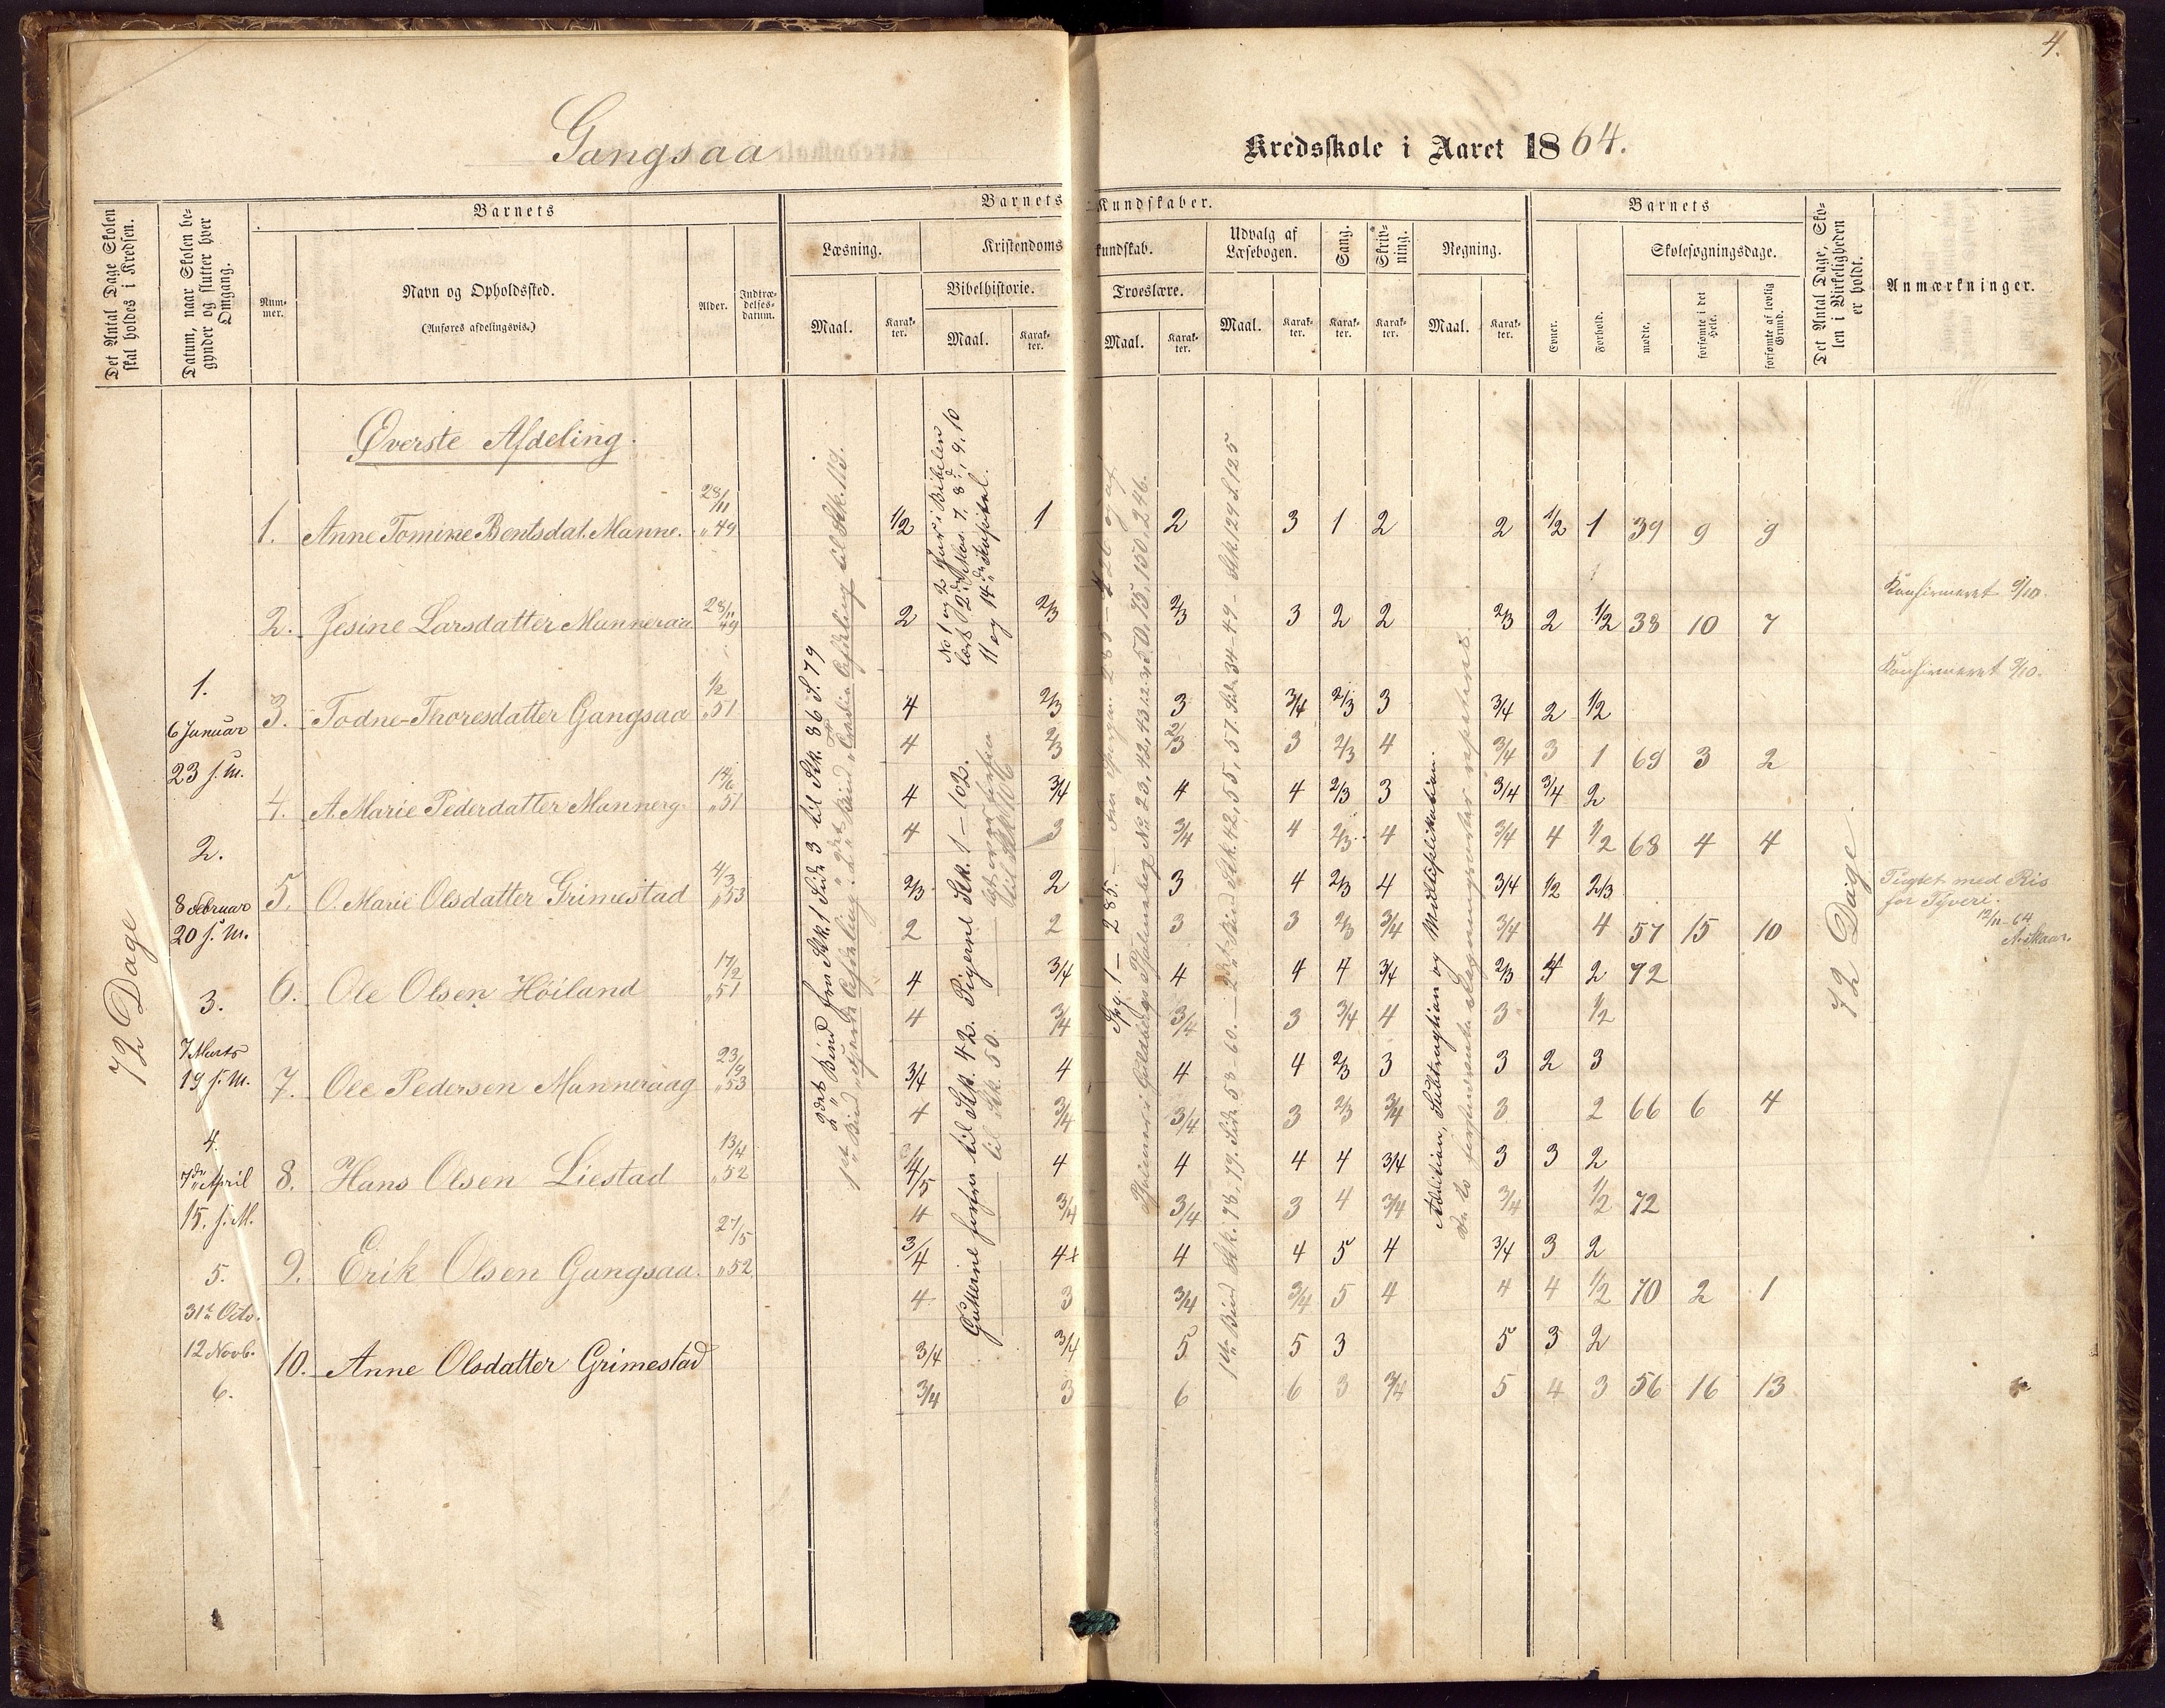 4.
Gangsaa
Kredsskole i Aaret 1864.
Det Antal Dage Skolen skal holdes i Kredsen.
Datum, naar Skolen begynder og slutter hver Omgang.
Barnets
Nummer.
Navn og Opholdssted.
(Anføres afdelingsvis.)
Alder.
Indtrædelsesdatum.
Barnets Kundskaber.
Læsning.
Maal.
Karakter.
Kristendomskundskab.
Bibelhistorie.
Maal.
Karakter.
Troeslære.
Maal.
Karakter.
Udvalg af Læsebogen.
Maal.
Karakter.
Sang.
Karakter.
Skrivning.
Karakter.
Regning.
Maal.
Karakter.
Barnets
Evner.
Forhold.
Skolesøgningsdage.
mødte.
forsømte i det Hele.
forsømte af lovlig Grund.
Det Antal Dage, Skolen i Virkeligheden er holdt.
Anmærkninger.
Øverste Afdeling.
1. Anne Tomine Bentsdat. Manne. 28/11 "49 1/2 1 2 3 1 2 2 1/2 1 39 9 9
Konfirmeret 9/10.
2. Jesine Larsdatter Manneraa 28/11 49 2 2/3 2/3 3 2 2 2/3 2 1/2 38 10 7
Konfirmeret 9/10.
3. Todne Thoresdatter Gangsaa 1/2 "51 4 2/3 3 3/4 2/3 3 3/4 2 1/2
4 2/3 2/3 3 2/3 4 3/4 3 1 69 3 2
4. A. Marie Pederdatter Mannerg 14/6 "51 4 3/4 4 4 2/3 3 3/4 3/4 2
4 3 3/4 4 2/3 4 3/4 4 1/2 68 4 4
5. O. Marie Olsdatter Grimestad 4/3 "53 2/3 2 3 4 2/3 4 3/4 1/2 2/3
2 2 3 3 2/3 3/4 3/4 4 57 15 10
Tugtet med Ris
for Tyveri.
12/11-64
6. Ole Olsen Höiland 17/2 "51 4 3/4 4 4 4 3/4 2/3 4 2 72
4 3/4 3/4 3 3/4 4 3 1/2
7. Ole Pedersen Manneraag 23/9 "53 3/4 4 4 4 2/3 3 3 2 3
4 3/4 3/4 3 2/3 3/4 3 2 66 6 4
8. Hans Olsen Liestad 13/4 "52 4/5 4 4 4 4 3/4 3 3 2
4 3/4 3/4 3 4 3/4 3/4 1/2 72
9. Erik Olsen Gangsaa. 27/5 "52 3/4 4 4 4 5 4 3/4 3 2
4 3 3/4 3/4 5 4 4 4 1/2 70 2 1
10. Anne Olsdatter Grimestad 3/4 3/4 5 5 3 5 3 2
3/4 3 6 6 3 3/4 5 4 3 56 16 13
72 Dage
1.
6 Januar
23 s. M.
2.
8 Februar
20 s. M.
3.
7 Marts
19 s. M.
4.
7de April
15. s. M.
5.
31te Octo.
12 Novb.
6.
2det Bind fra Stk. 1 Side 3 til Stk. 86 S. 79
No 1 og 2 har i Bibelen
læst 2den Mos. 7, 8, 9, 10
11 og 14de Kapitel.
Gutterne forfra til Stk. 42. Pigerne Stk. 1 – 102.
til Stk. 50.
til Stk. 106
Spg. 1 – 285.
Addition, Subtragtion og Multiplikation.
72 Dage